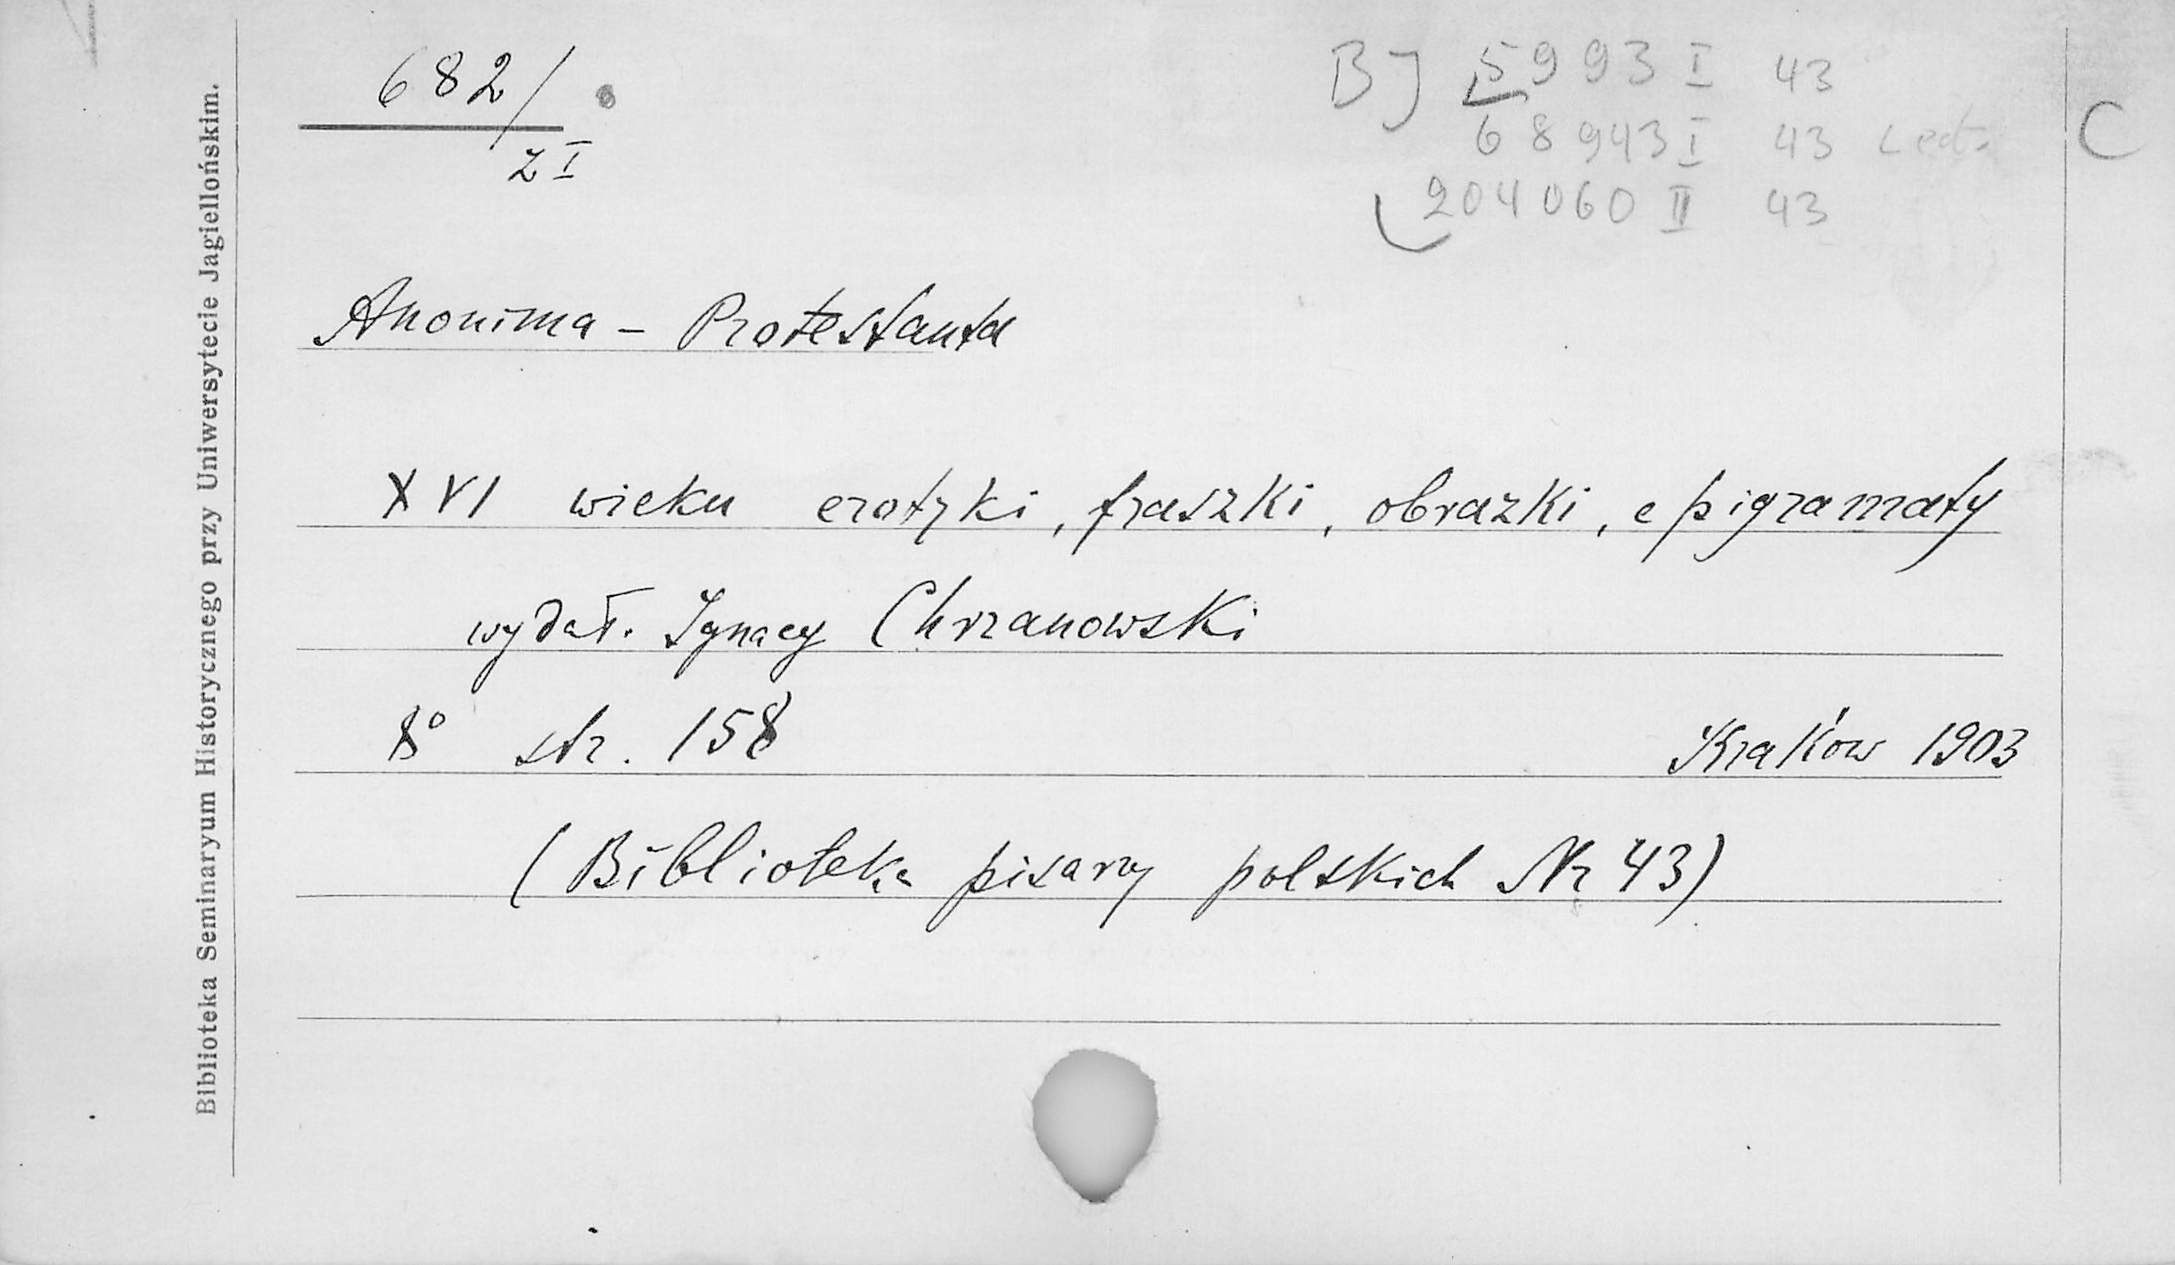 682/
z I
BJ 5993 I 43
68943 I 43
204060 II 43
C
Anonima - Protestanta
XVI wieku erotyki, fraszki, obrazki, epigramaty
wydał. Ignacy Chrzanowski
8° str. 158 Kraków 1903
(Biblioteka pisarzy polskich Nr 43)
Biblioteka Seminaryum Historycznego przy Uniwersytecie Jagiellońskim.